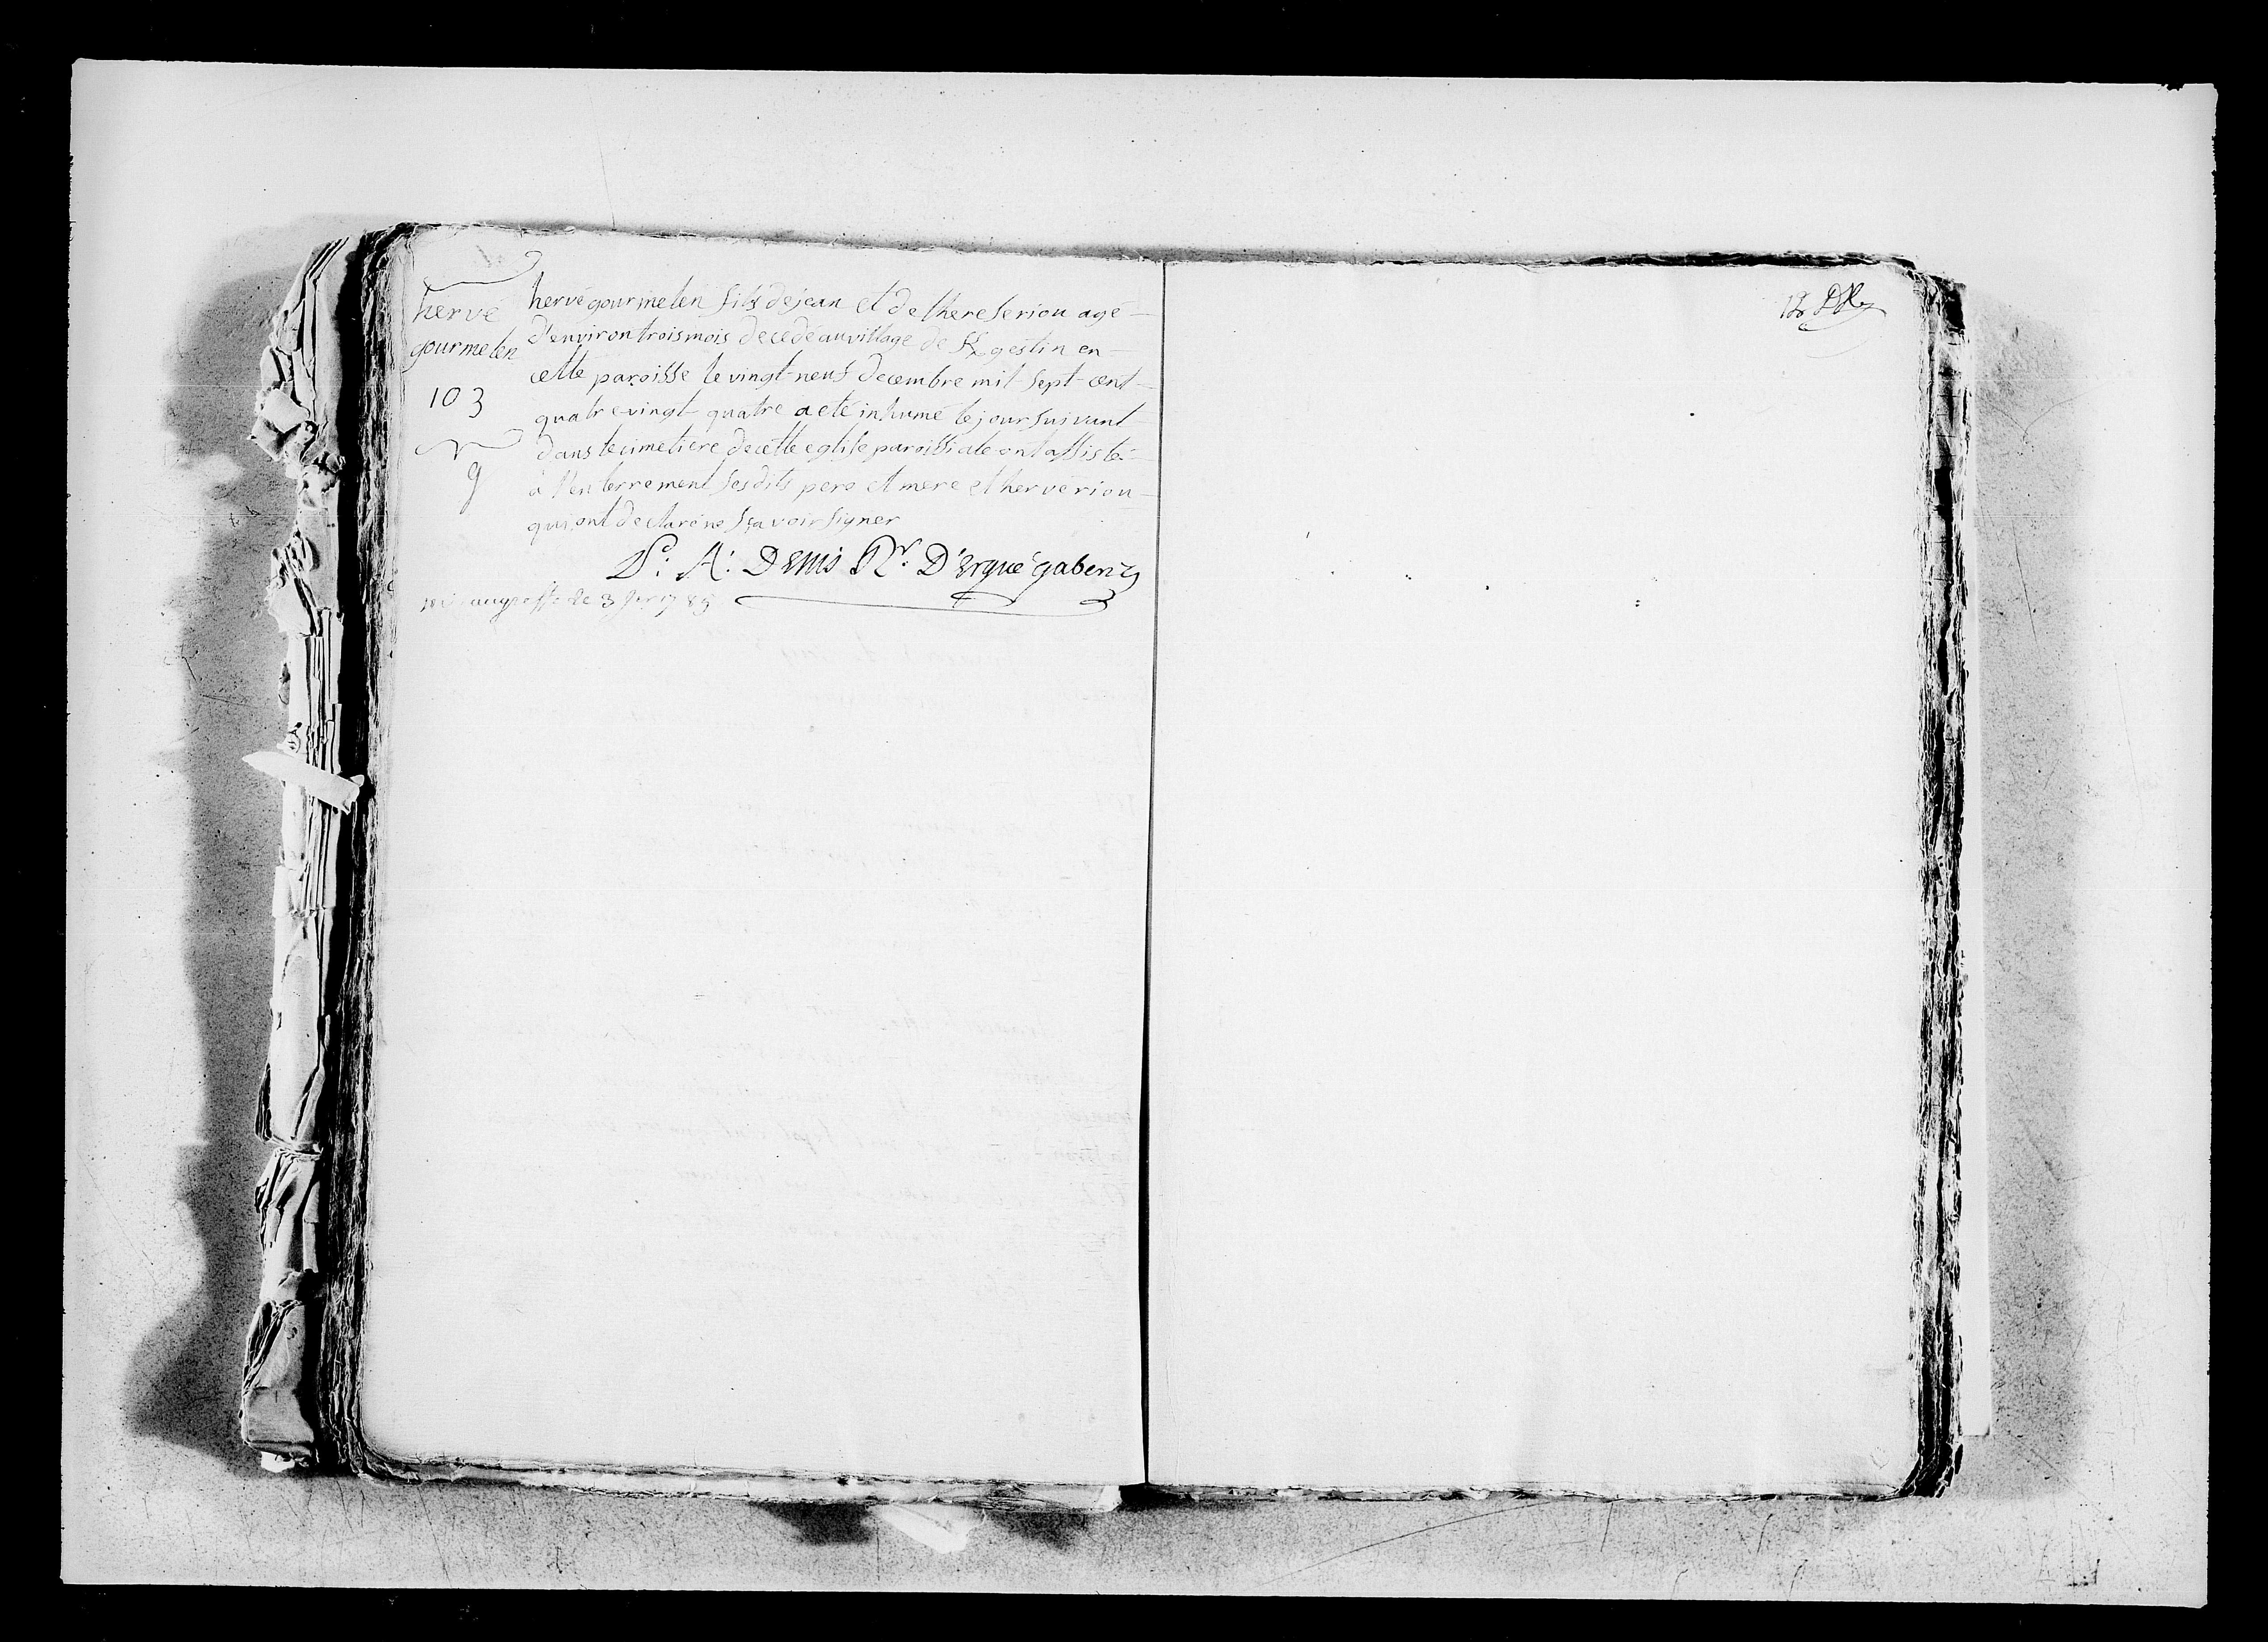 hervé
gourmelen
103
g
hervé gourmelen fils de jean et de therese riou agé
d'environ trois mois decedé au village de Kgestin en
cette paroisse le vingt-neuf decembre mil-sept-cent
quatre-vingt-quatre a eté inhumé le jour suivant
dans le cimetiere de cette eglise paroissiale ont assisté
à l'enterrement sesdits pere et mere et hervé riou
qui ont declaré ne sçavoir signer
A: Denis Rr. D'ergué gaberic
au greffe le 3